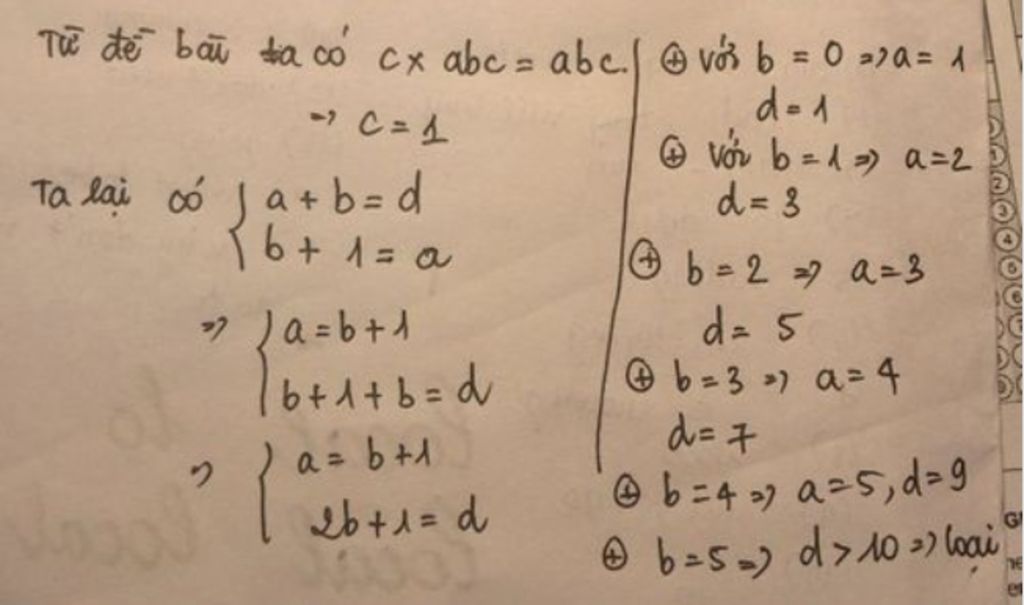 Từ đề bài ta có c x abc = abc.
→ c = 1
Ta lại có { a + b = d
b + 1 = a
=> { a = b + 1
b + 1 + b = d
=> { a = b + 1
2b + 1 = d
⊕ với b = 0 => a = 1
d = 1
⊕ với b = 1 => a = 2
d = 3
⊕ b = 2 => a = 3
d = 5
⊕ b = 3 => a = 4
d = 7
⊕ b = 4 => a = 5, d = 9
⊕ b = 5 => d > 10 => loại